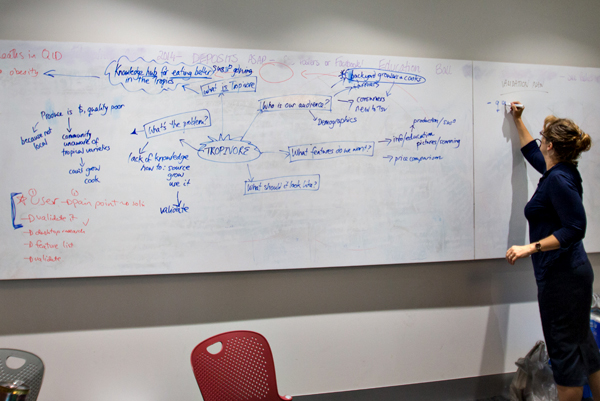 DEPOSITS
Education
Knowledge hub for eating better, growing
in the tropics
backyard growers & cooks
obesity
what to improve
Who is our audience?
consumers
new to TSV
Demographics
Produce is $, quality poor
because not
local
community
unaware of
tropical varieties
can't grow
cook
What's the problem?
lack of knowledge
how to: source
grow
use it
validate
TROPIVORE
What features do we want?
info/education
pictures/scanning
price comparisons
What should it look like?
User → pain point →
→ validate it
→ feature list
→ validate